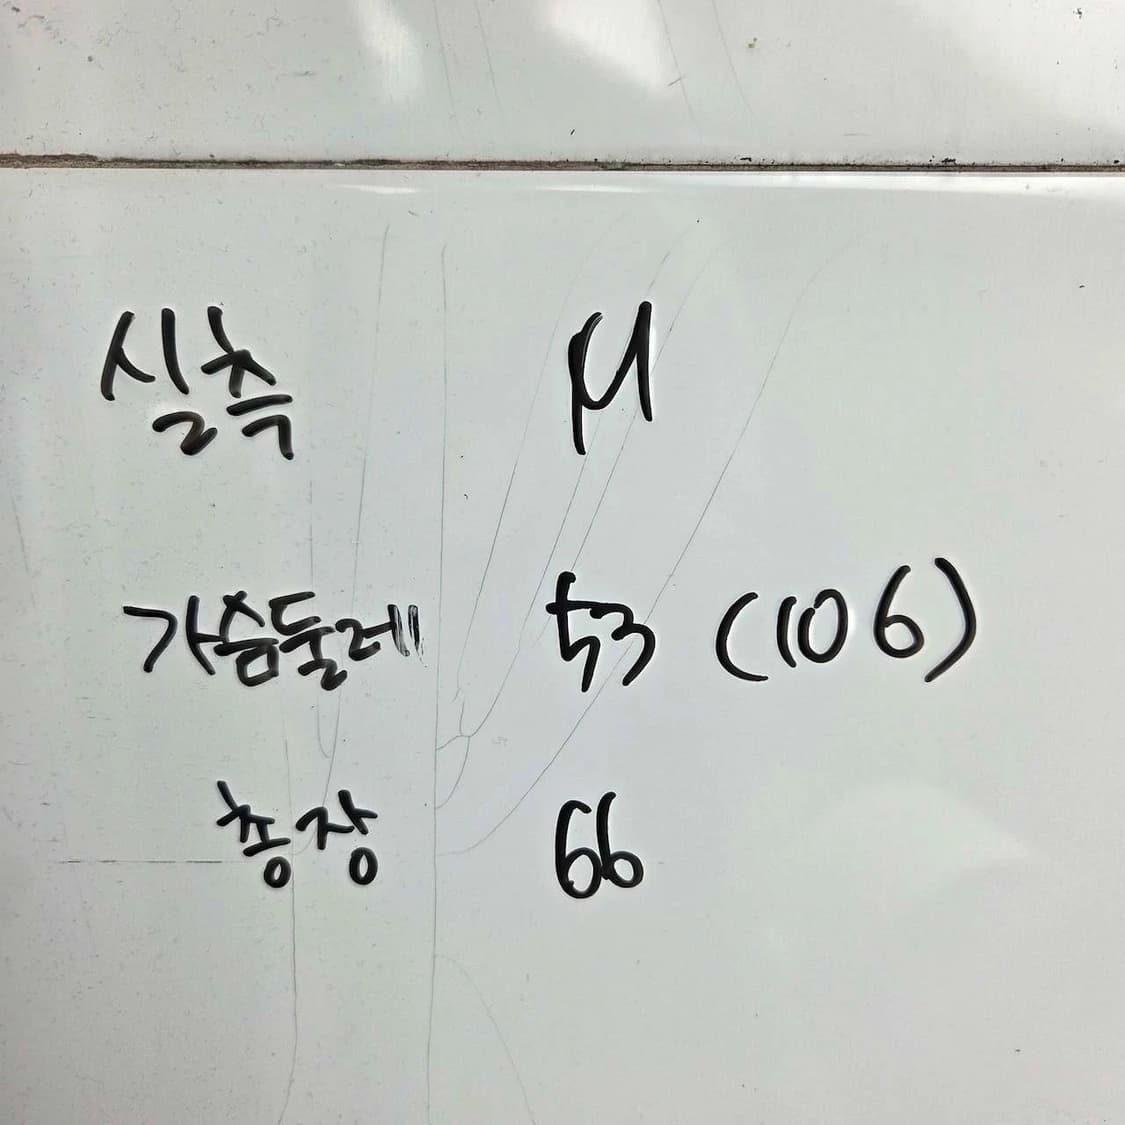 실측 M
가슴둘레 53 (106)
총장 66